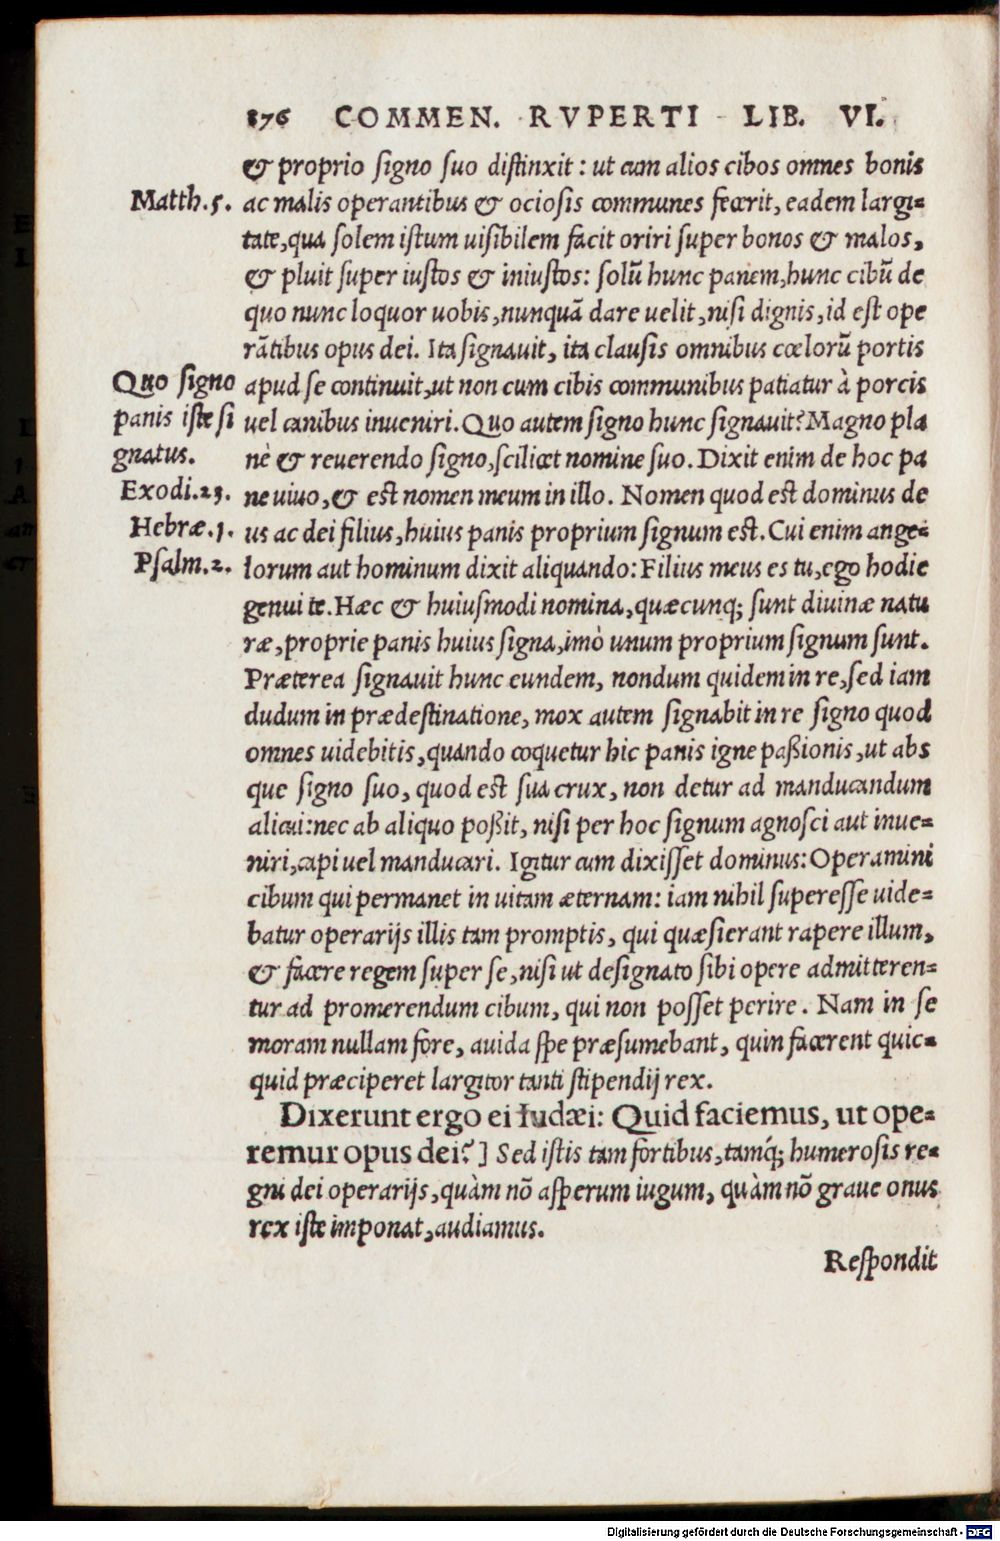 376 COMMEN. RVPERTI LIB. VI.
& proprio ſigno ſuo diſtinxit : ut cum alios cibos omnes bonis
Matth.5. ac malis operantibus & ocioſis communes fecerit, eadem largi=
tate,qua ſolem iſtum uiſibilem facit oriri ſuper bonos & malos,
& pluit ſuper iuſtos & iniuſtos: ſolũ hunc panem,hunc cibũ de
quo nunc loquor uobis,nunquã dare uelit,niſi dignis,id eſt ope
rãtibus opus dei. Ita ſignauit, ita clauſis omnibus cœlorũ portis
Quo ſigno apud ſe continuit,ut non cum cibis communibus patiatur à porcis
panis iſte ſi uel canibus inueniri. Quo autem ſigno hunc ſignauit? Magno pla
gnatus. nè & reuerendo ſigno,ſcilicet nomine ſuo. Dixit enim de hoc pa
Exodi.23. ne uiuo,& eſt nomen meum in illo. Nomen quod eſt dominus de
Hebræ.1. us ac dei filius,huius panis proprium ſignum eſt. Cui enim ange=
Pſalm.2. lorum aut hominum dixit aliquando: Filius meus es tu,ego hodie
genui te. Hæc & huiuſmodi nomina,quæcunq; ſunt diuinæ natu
ræ,proprie panis huius ſigna,imò unum proprium ſignum ſunt.
Præterea ſignauit hunc eundem, nondum quidem in re,ſed iam
dudum in prædeſtinatione, mox autem ſignabit in re ſigno quod
omnes uidebitis,quando coquetur hic panis igne paßionis,ut abs
que ſigno ſuo, quod eſt ſua crux, non detur ad manducandum
alicui:nec ab aliquo poßit, niſi per hoc ſignum agnoſci aut inue=
niri,capi uel manducari. Igitur cum dixiſſet dominus: Operamini
cibum qui permanet in uitam æternam: iam nihil ſupereſſe uide=
batur operarijs illis tam promptis, qui quæſierant rapere illum,
& facere regem ſuper ſe,niſi ut deſignato ſibi opere admitteren=
tur ad promerendum cibum, qui non poſſet perire. Nam in ſe
moram nullam fore, auida ſpe præſumebant, quin facerent quic=
quid præciperet largitor tanti ſtipendij rex.
Dixerunt ergo ei Iudæi: Quid faciemus, ut ope=
remur opus dei?] Sed iſtis tam fortibus,tamq́; humeroſis re=
gni dei operarijs,quàm nõ aſperum iugum, quàm nõ graue onus
rex iſte imponat,audiamus.
Reſpondit
Digitalisierung gefördert durch die Deutsche Forschungsgemeinschaft - DFG